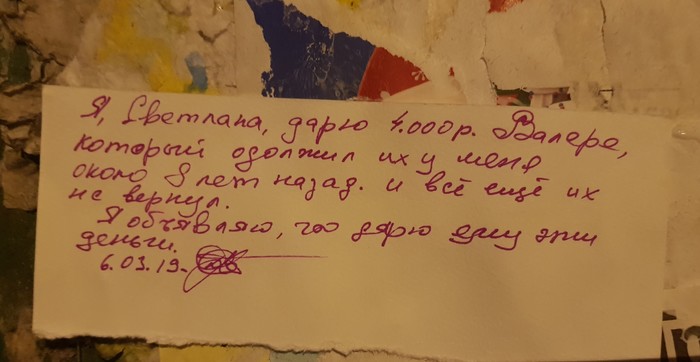 Я, Светлана, дарю 4.000р. Валере,
который одолжил их у меня
около 8 лет назад. и всё ещё их
не вернул.
Я объявляю, что дарю ему эти
деньги.
6.03.19.